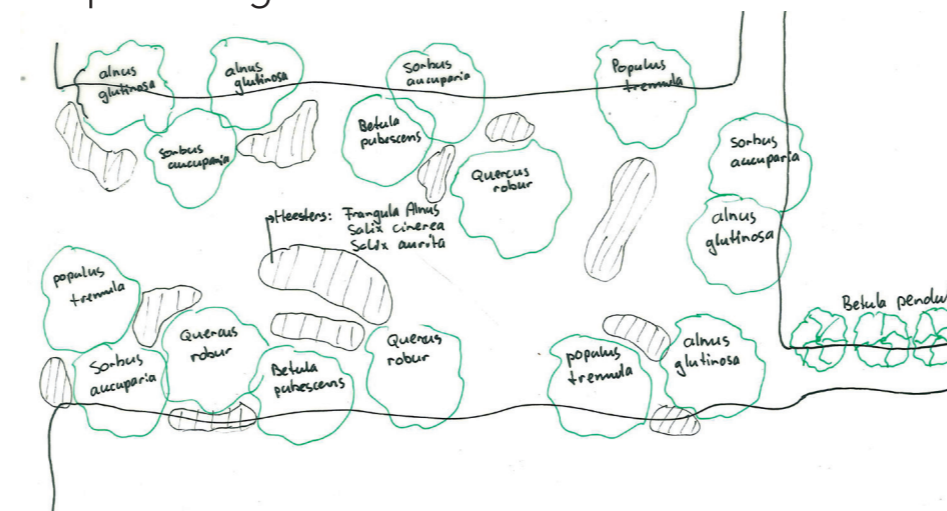 alnus
glutinosa
alnus
glutinosa
Sorbus
aucuparia
Populus
tremula
Sorbus
aucuparia
Betula
pubescens
Quercus
robur
Sorbus
aucuparia
alnus
glutinosa
Heesters: Frangula Alnus
Salix cinerea
Salix aurita
populus
tremula
Quercus
robur
Sorbus
aucuparia
Betula
pubescens
Quercus
robur
populus
tremula
alnus
glutinosa
Betula pendul